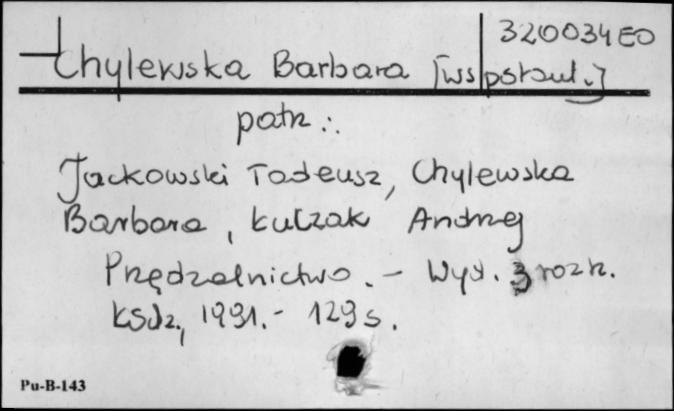 320034 EO
Chylewska Barbara [wspotaut.]
patrz:
Jackowski Tadeusz, Chylewska
Barbara, Łuczak Andrzej
Przędzalnictwo. - Wyd. 3 rozsz.
Łódz, 1991. - 129 s.
Pu-B-143